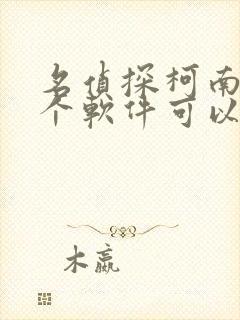 名侦探柯南
个软件可以
木嬴